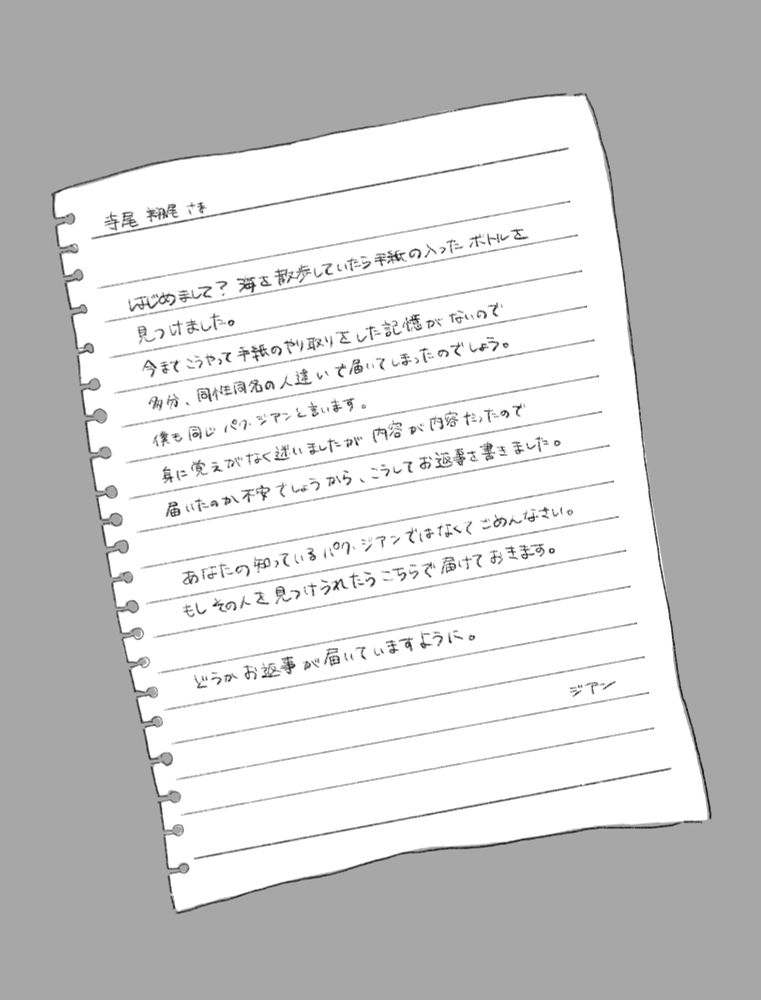 寺尾 翔尾 さま
はじめまして？海を散歩していたら手紙の入ったボトルを
見つけました。
今までこうやって手紙のやり取りをした記憶がないので
多分、同性同名の人違いで届いてしまったのでしょう。
僕も同じ パク・ジアンと言います。
身に覚えがなく迷いましたが 内容が内容だったので
届いたのか不安でしょうから、こうしてお返事を書きました。
あなたの知っているパク・ジアンではなくてごめんなさい。
もしその人を見つけられたらこちらで届けておきます。
どうかお返事が届いていますように。
ジアン